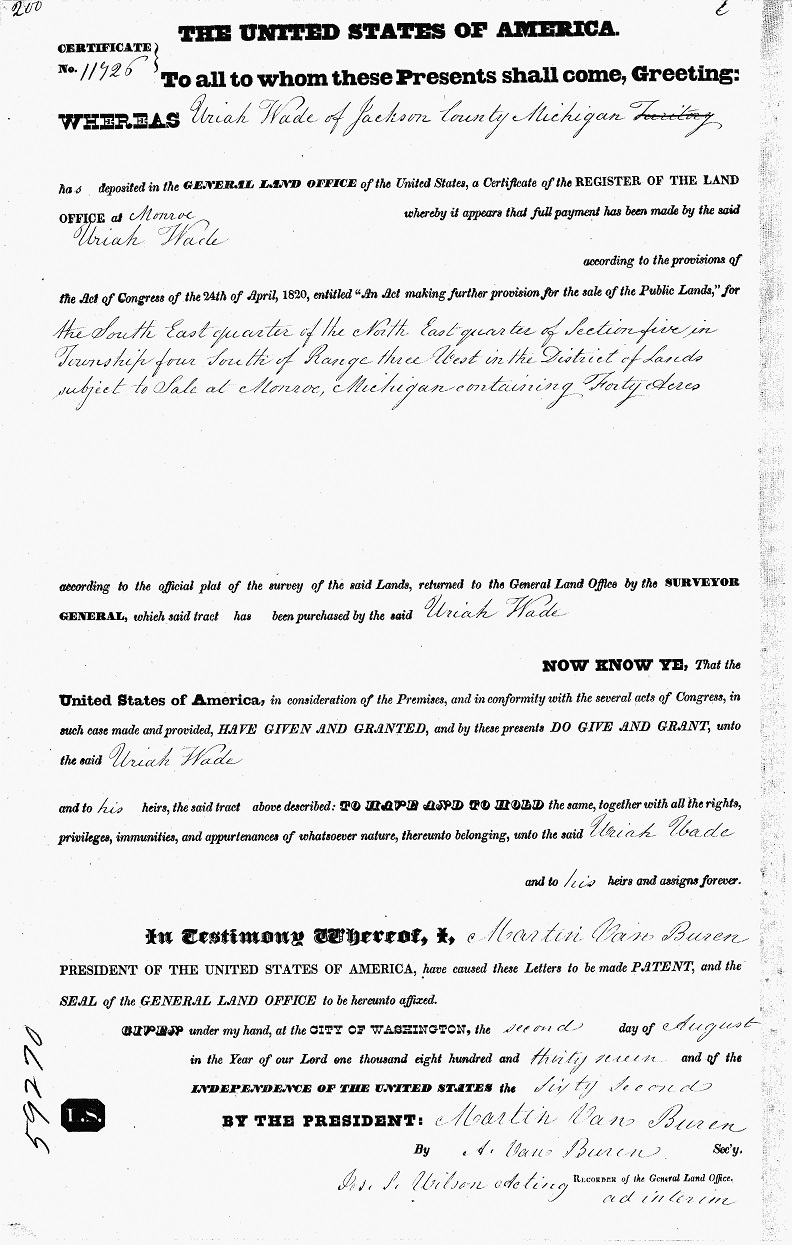 200
THE UNITED STATES OF AMERICA.
CERTIFICATE
No. 11926
To all to whom these Presents shall come, Greeting:
WHEREAS Uriah Wade of Jackson County Michigan Territory
has deposited in the GENERAL LAND OFFICE of the United States, a Certificate of the REGISTER OF THE LAND
OFFICE at Monroe whereby it appears that full payment has been made by the said
Uriah Wade
according to the provisions of
the Act of Congress of the 24th of April, 1820, entitled "An Act making further provision for the sale of the Public Lands," for
the South East quarter of the North East quarter of Section five, in
Township four South of Range three West in the District of Lands
subject to Sale at Monroe, Michigan containing Forty Acres
according to the official plat of the survey of the said Lands, returned to the General Land Office by the SURVEYOR
GENERAL, which said tract has been purchased by the said Uriah Wade
NOW KNOW YE, That the
United States of America, in consideration of the Premises, and in conformity with the several acts of Congress, in
such case made and provided, HAVE GIVEN AND GRANTED, and by these presents DO GIVE AND GRANT, unto
the said Uriah Wade
and to his heirs, the said tract above described: TO HAVE AND TO HOLD the same, together with all the rights,
privileges, immunities, and appurtenances of whatsoever nature, thereunto belonging, unto the said Uriah Wade
and to his heirs and assigns forever.
In Testimony Whereof, I, Martin Van Buren
PRESIDENT OF THE UNITED STATES OF AMERICA, have caused these Letters to be made PATENT, and the
SEAL of the GENERAL LAND OFFICE to be hereunto affixed.
GIVEN under my hand, at the CITY OF WASHINGTON, the second day of August
in the Year of our Lord one thousand eight hundred and thirty seven and of the
INDEPENDENCE OF THE UNITED STATES the Sixty Second
BY THE PRESIDENT: Martin Van Buren
By A. Van Buren Sec'y.
Jos. S. Wilson Acting RECORDER of the General Land Office.
ad interim
L.S.
59270